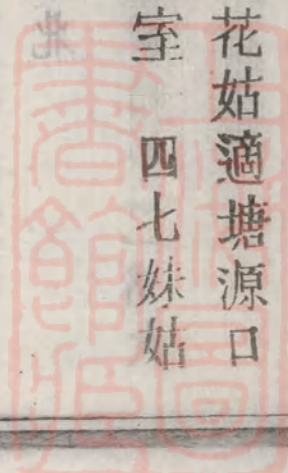 花姑適塘源口
室　四七妹姑